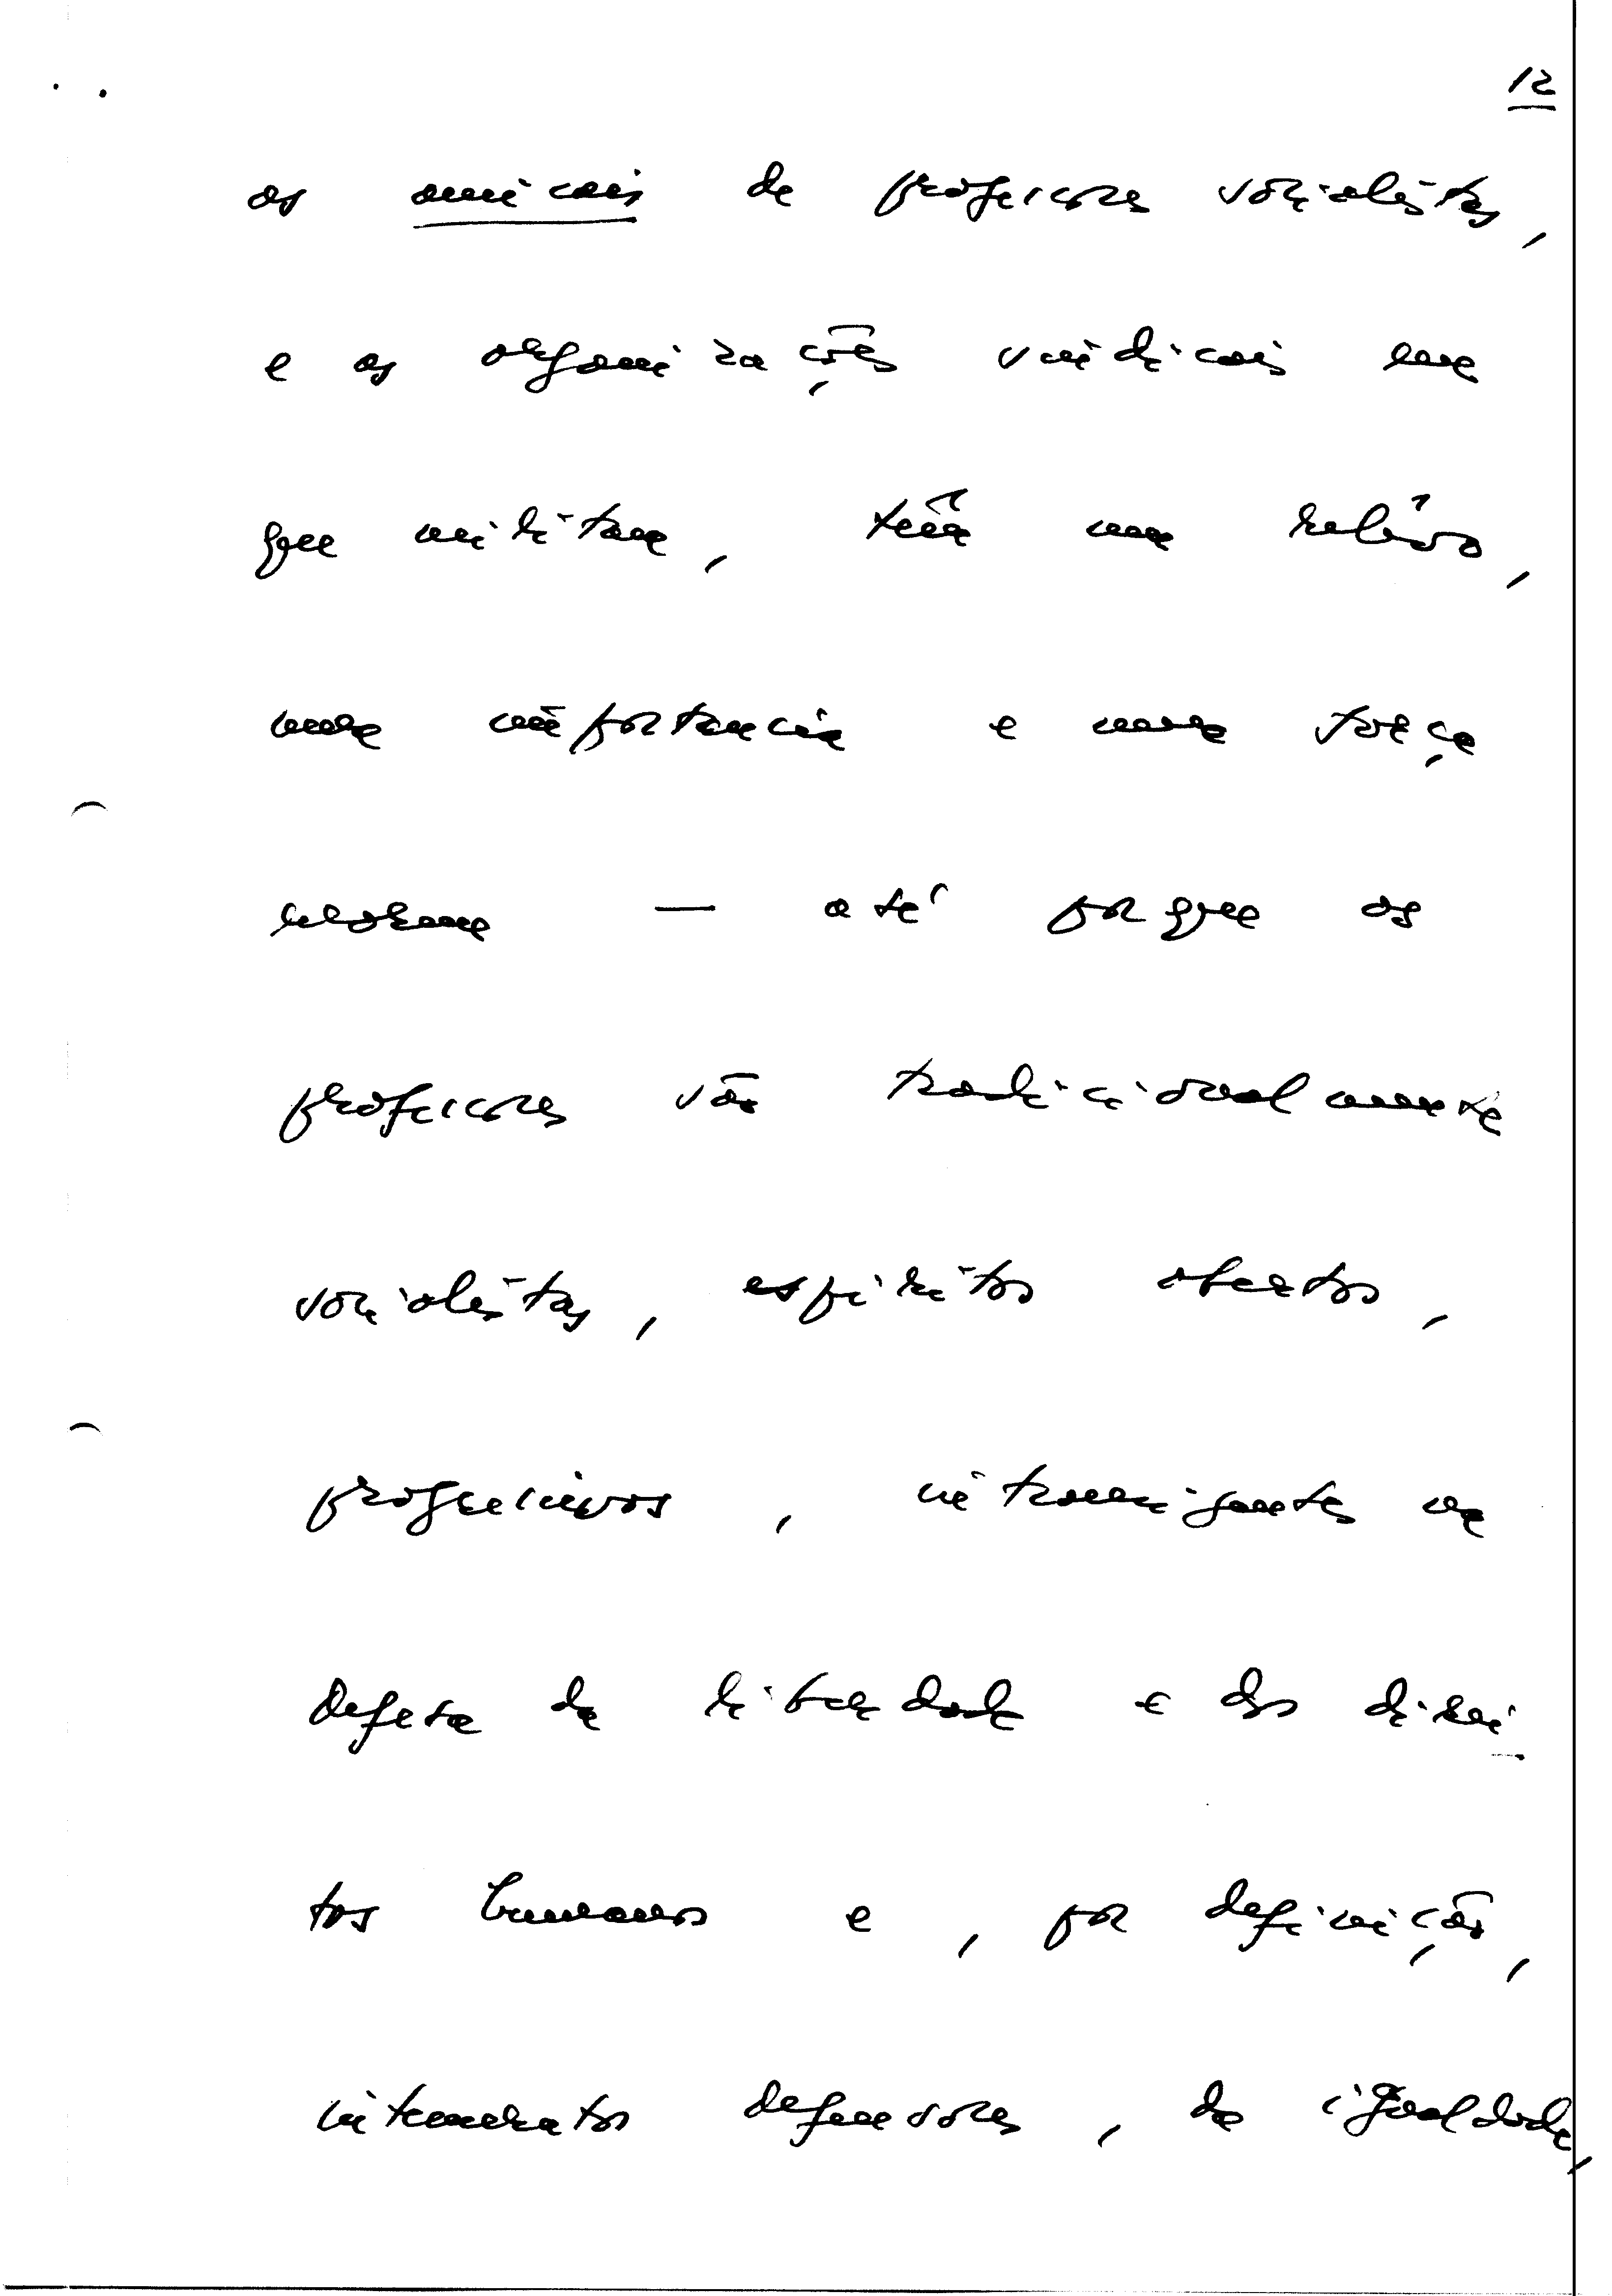 12
as amicais de professores socialistas,
e as organizações sindicais em
que militam, têm um relêvo,
uma importancia e uma força
enorme — até porque os
professores são tradicionalmente
socialistas, espiritos abertos,
progressivos, intransigentes na
defesa da liberdade e dos direi
tos humanos e, por definição,
intemeratos defensores, da igualdade,